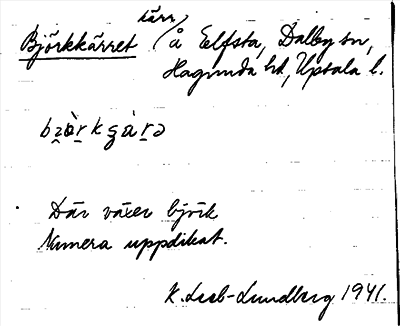 kärr
Björkkärret / å Eelfsta, Dalby sn,
Hagunda hd, Uppsala l.
Där växer björk
Numera uppdikat.
K. Leeb-Lundberg 1941.